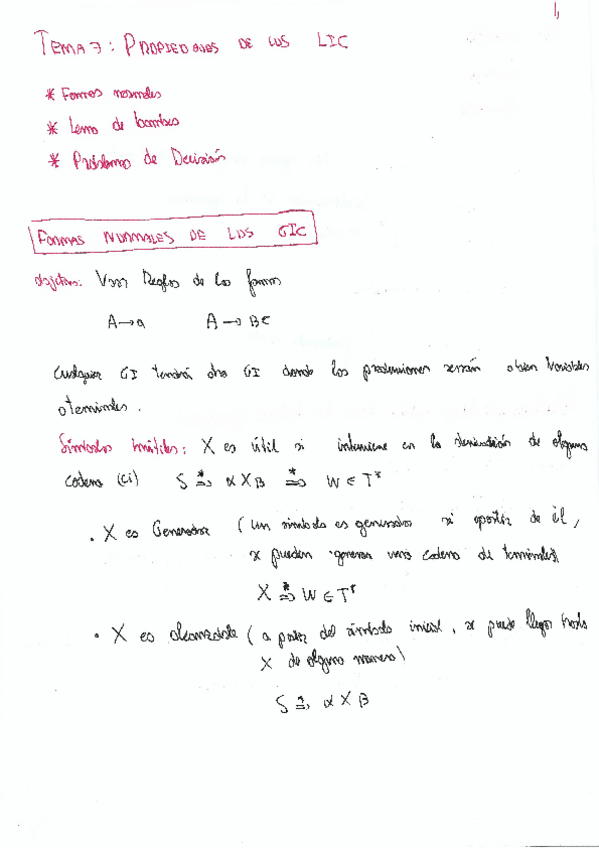 1,
TEMA 7: PROPIEDADES DE LOS LIC
* Formas normales
* Lema de bombeo
* Problemas de Decisión
FORMAS NORMALES DE LOS GIC
Objetivo: Usar Reglas de la forma
A → a A → BC
Cualquier GI tendrá otra GI donde las producciones serán o bien Variables
o terminales.
Símbolos inútiles: X es útil si interviene en la derivación de alguna
cadena (ci) S ⇒* α X B ⇒* W ∈ T*
• X es Generador (Un símbolo es generador si a partir de él,
se pueden generar una cadena de terminales)
X ⇒* W ∈ T*
• X es alcanzable (a partir del símbolo inicial, se puede llegar hasta
X de alguna manera)
S ⇒* α X B